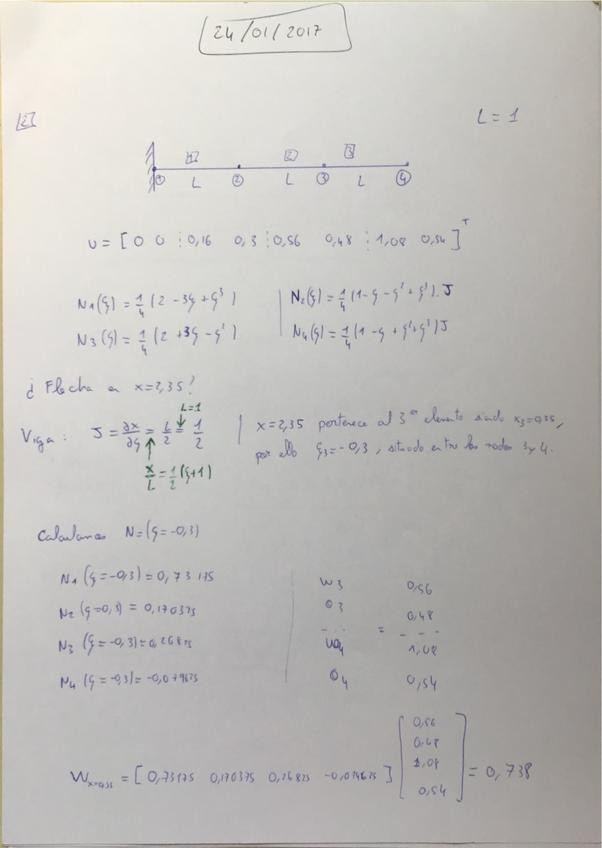 24/01/2017
2
L = 1
1 2 3
1 L 2 L 3 L 4
U = [ 0 0 ⋮ 0,16 0,3 ⋮ 0,56 0,48 ⋮ 1,08 0,54 ]ᵀ
N1(ξ) = 1/4 (2 - 3ξ + ξ³) | N2(ξ) = 1/4 (1 - ξ - ξ² + ξ³). J
N3(ξ) = 1/4 (2 + 3ξ - ξ³) | N4(ξ) = 1/4 (1 - ξ + ξ² + ξ³) J
¿Flecha en x=2,35?
L=1
Viga: J = ∂x/∂ξ = L/2 = 1/2
x/L = 1/2 (ξ+1)
x = 2,35 pertenece al 3er elemento siendo x3=0,35,
por ello ξ3 = -0,3, situado entre los nodos 3 y 4.
Calculamos N=(ξ=-0,3)
N1 (ξ=-0,3) = 0,73175
N2 (ξ=0,3) = 0,170375
N3 (ξ=-0,3) = 0,26825
N4 (ξ=-0,3) = -0,0
W3 0,56
θ3 0,48
--- = ---
W4 1,08
θ4 0,54
W = [ 0,73175 0,170375 0,26825 ] [ 0,56 0,48 1,08 0,54 ] = 0,738